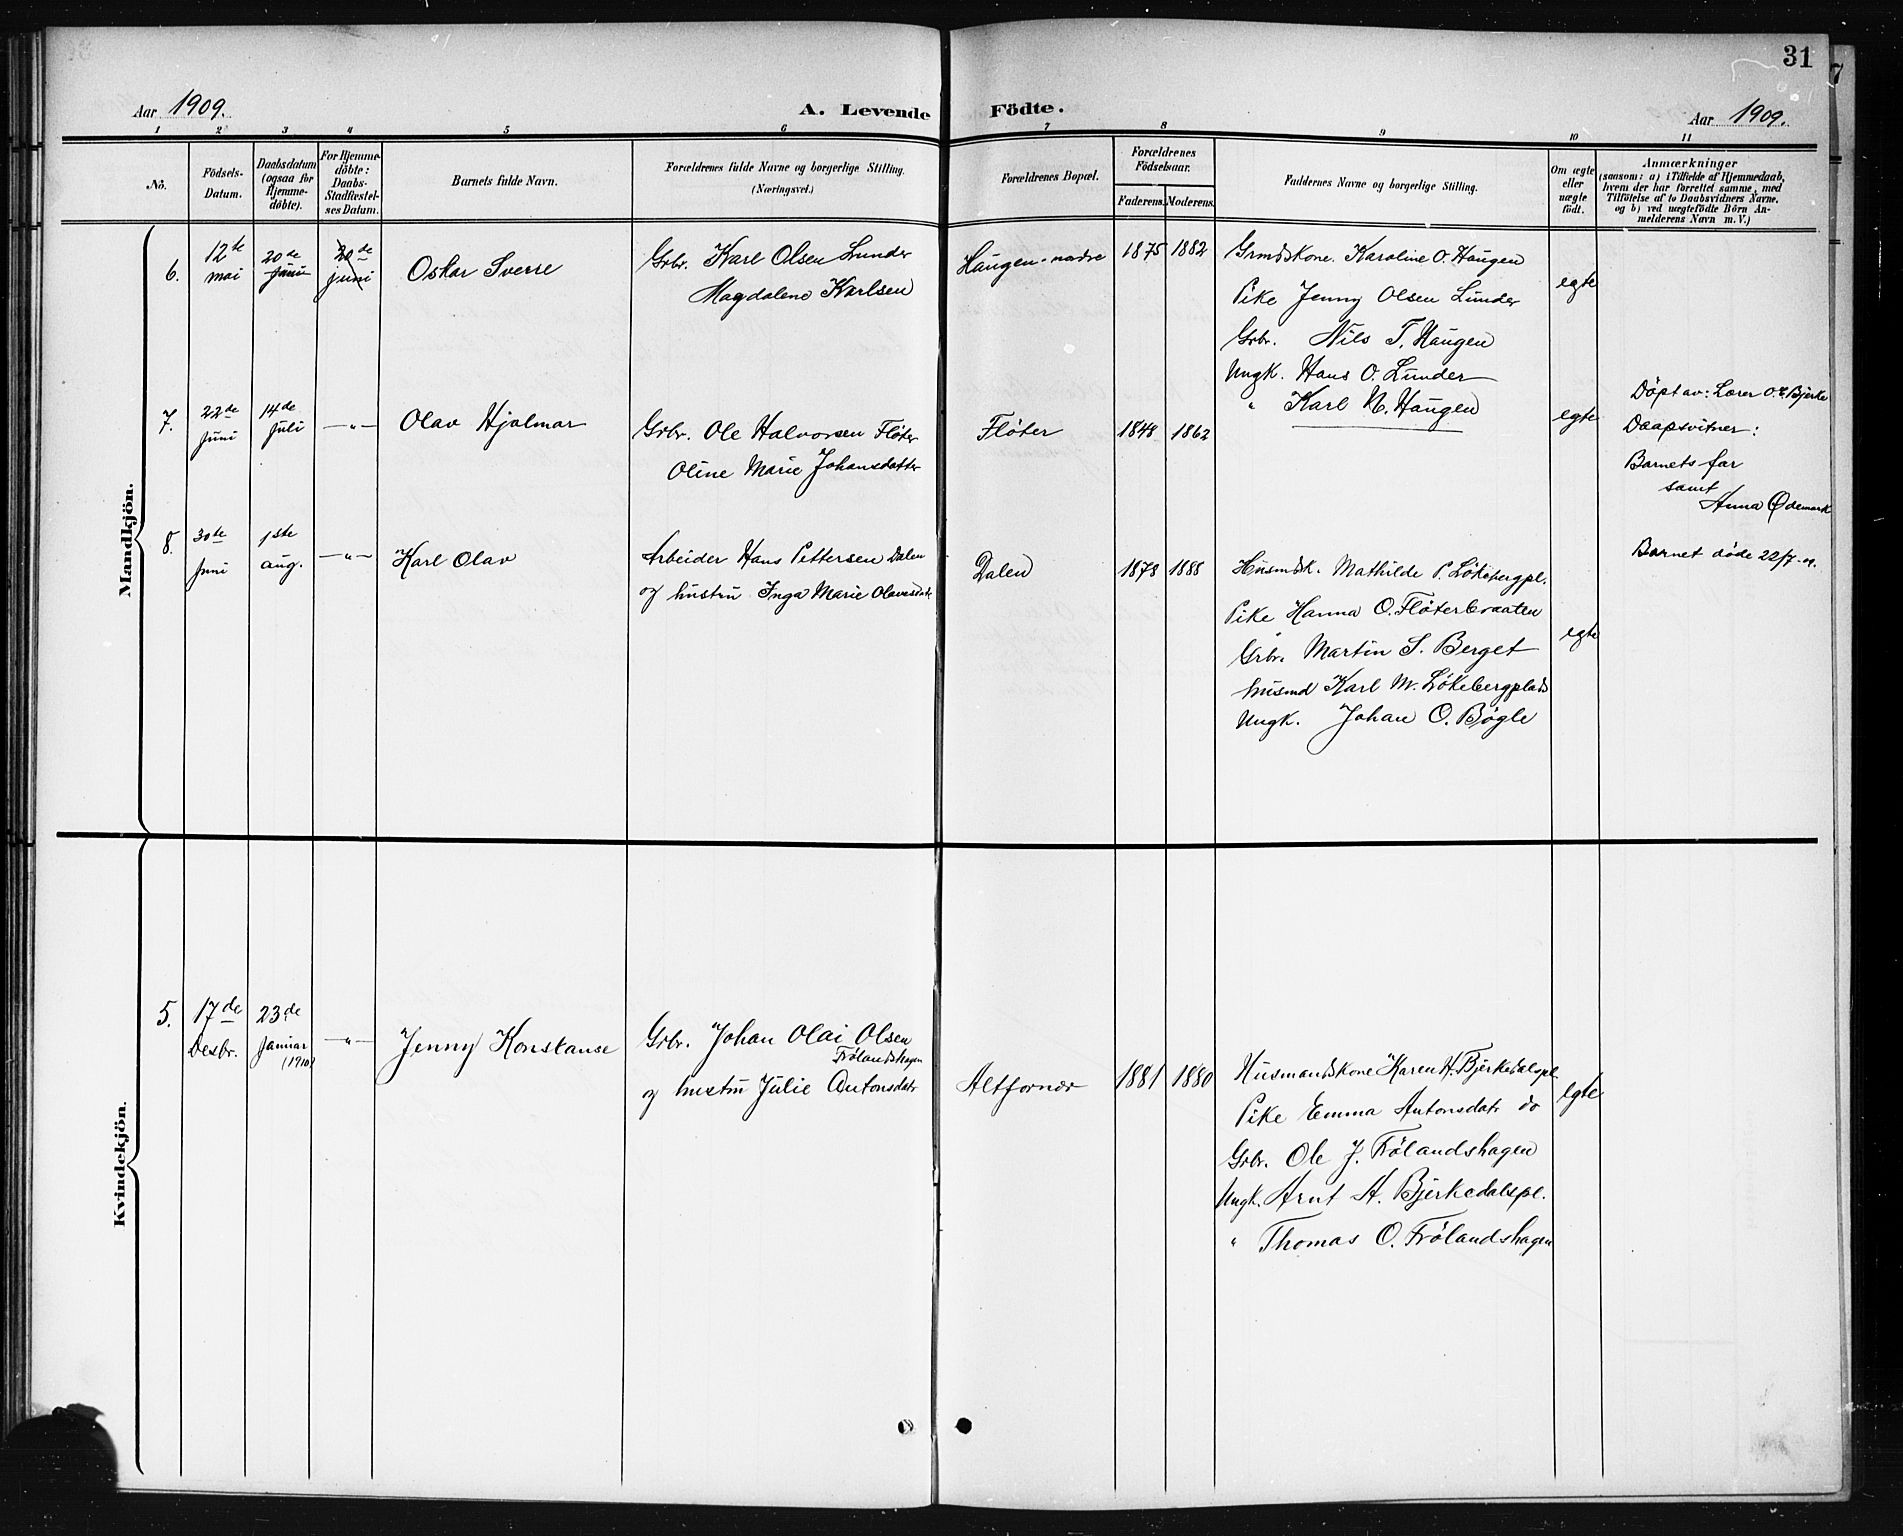 31
Aar 1909.
A. Levende Födte.
Aar 1909.
1 2 3 4 5 6 7 8 9 10 11
No.
Födsels-
Datum.
Daabsdatum
(ogsaa for
Hjemme-
döbte).
For Hjemme-
döbte:
Daabs-
Stadfæstel-
ses Datum.
Barnets fulde Navn.
Forældrenes fulde Navne og borgerlige Stilling.
(Næringsvei.)
Forældrenes Bopæl.
Forældrenes
Födselsaar.
Faderens.
Moderens.
Faddernes Navne og borgerlige Stilling.
Om ægte
eller
uægte
födt.
Anmærkninger
(saasom: a) i Tilfælde af Hjemmedaab,
hvem der har forrettet samme, med
Tilföielse af to Daabsvidners Navne.
og b) ved uægtefödte Börn An-
melderens Navn m. V.)
Mandkjön.
6.
12te
mai
20de
juni
20de
juni
Oskar Sverre
Grbr. Karl Olsen Lunder
Magdalene Karlsen
Haugen nordre
1875
1882
Grmdskone. Karoline O. Haugen
Pike Jenny Olsen Lunder
Grbr. Nils T. Haugen
Ungk. Hans O. Lunder
" Karl N. Haugen
egte
7.
22de
Juni
14de
Juli
-"-
Olav Hjalmar
Grbr. Ole Halvorsen Fløter
Oline Marie Johansdatter
Fløter
1848
1862
egte
Döpt av: Lærer O. E. Bjerke
Daapsvitner:
Barnets far
samt
Anna Ødemark
Barnet døde 22/7-09.
8.
30te
Juni
1ste
aug.
-"-
Karl Olav
Arbeider Hans Pettersen Dalen
og hustru Inga Marie Olavesdatr
Dalen
1878
1888
Husmdsk. Mathilde P. Løkebergpl.
Pike Hanna O. Fløterbraaten
Grbr. Martin S. Berget
husmd Karl M. Løkebergplads
Ungk. Johan O. Bøgle
egte
Kvindekjön.
5.
17de
Desbr.
23de
Januar
(1910)
-"-
Jenny Konstanse
Grbr. Johan Olai Olsen
Frølandshagen
og hustru Julie Antonsdatr
Altfornær
1881
1880
Husmandskone Karen H. Bjerkedalspl.
Pike Emma Antonsdatr do
Grbr. Ole J. Frølandshagen
Ungk. Arnt A. Bjerkedalspl.
" Thomas O. Frølandshagen
egte